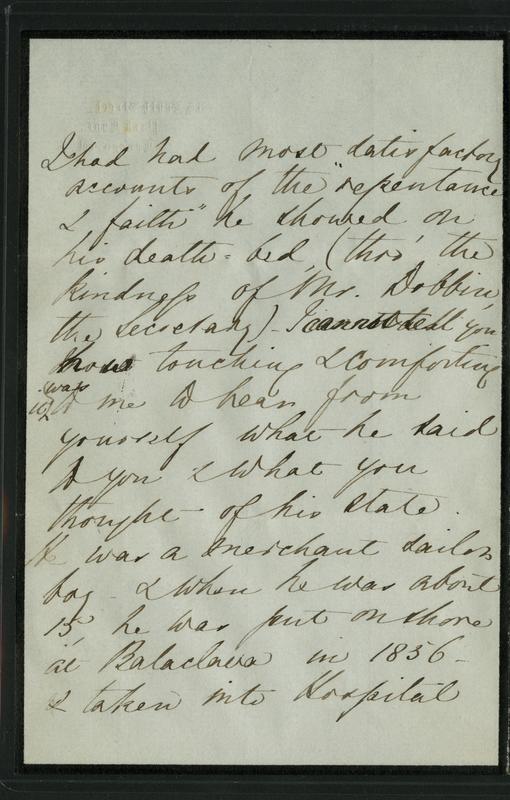 I had had most satisfactory
accounts of the "repentance
& faith" he showed on
his death-bed, (thro' the
kindness of Mr. Dobbin,
the Secretary) - I cannot tell you
how touching & comforting
it was
to me to hear from
yourself what he said
to you & what you
thought of his state.
He was a merchant sailor
boy - & when he was about
15, he was put on shore
at Balaclava in 1856 -
& taken into Hospital